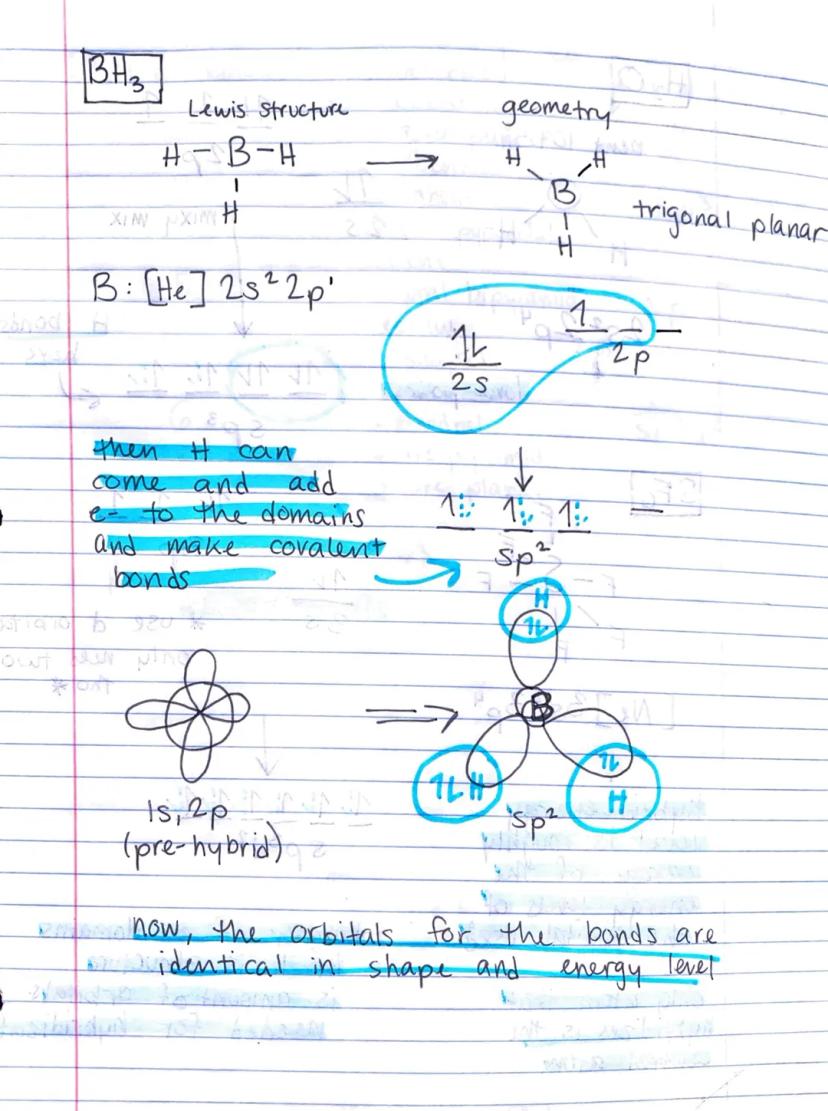 BH₃
Lewis Structure
geometry
H-B-H
H
H H
B
H
trigonal planar
B: [He] 2s² 2p¹
1L 1 _ _
2s 2p
then H can
come and add
e- to the domains
and make covalent
bonds
1 1 1 _
sp²
H
1L
B
1L H
1L
H
1s, 2p
(pre-hybrid)
sp²
now, the orbitals for the bonds are
identical in shape and energy level